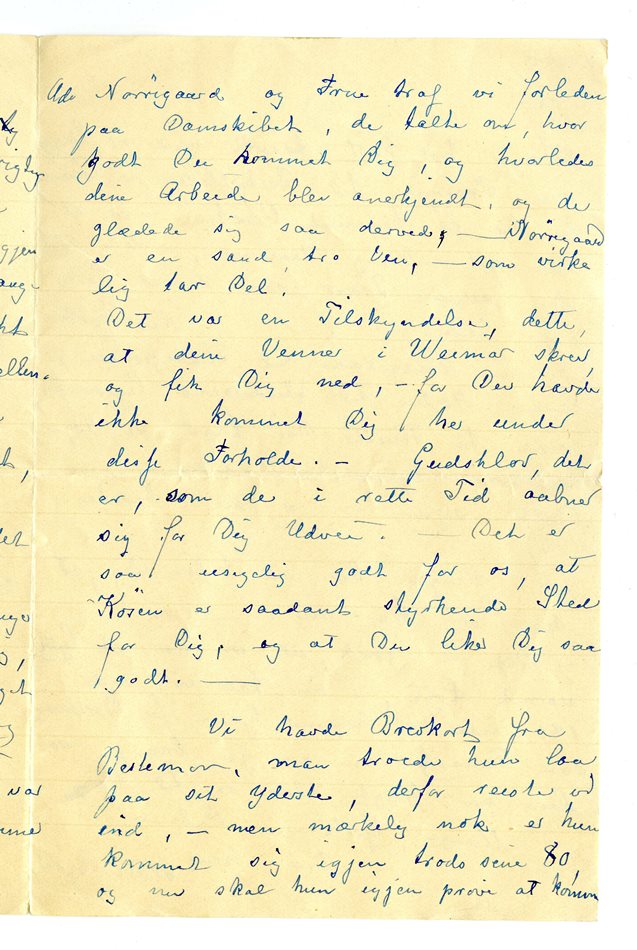 Ade Norregaard og Frue traf vi forleden
paa Damskibet, de talte om, hvor
godt Du kommet Dig, og hvorledes
dine Arbeide blev anerkjendt, og de
glædede sig saa derved, — Norregaard
er en sand, tro Ven, — som virke
lig tar Del.
Det var en Tilskyndelse, dette,
at dine Venner i Weimar skrev,
og fik Dig ned, — for Du havde
ikke kommet Dig her under
disse Forholde. — Gudskelov, det
er, som de i rette Tid aabner
sig for Dig Udvei. — Det er
saa usigelig godt for os, at
Kösen er saadant styrkende Sted
for Dig, og at Du liker Dig saa
godt. —
Vi havde Brevkort fra
Bestemor, man troede hun laa
paa sit Yderste, derfor reiste vi
ind, — men mærkelig nok er hun
kommet sig igjen trods sine 80
og nu skal hun igjen prøve at komm